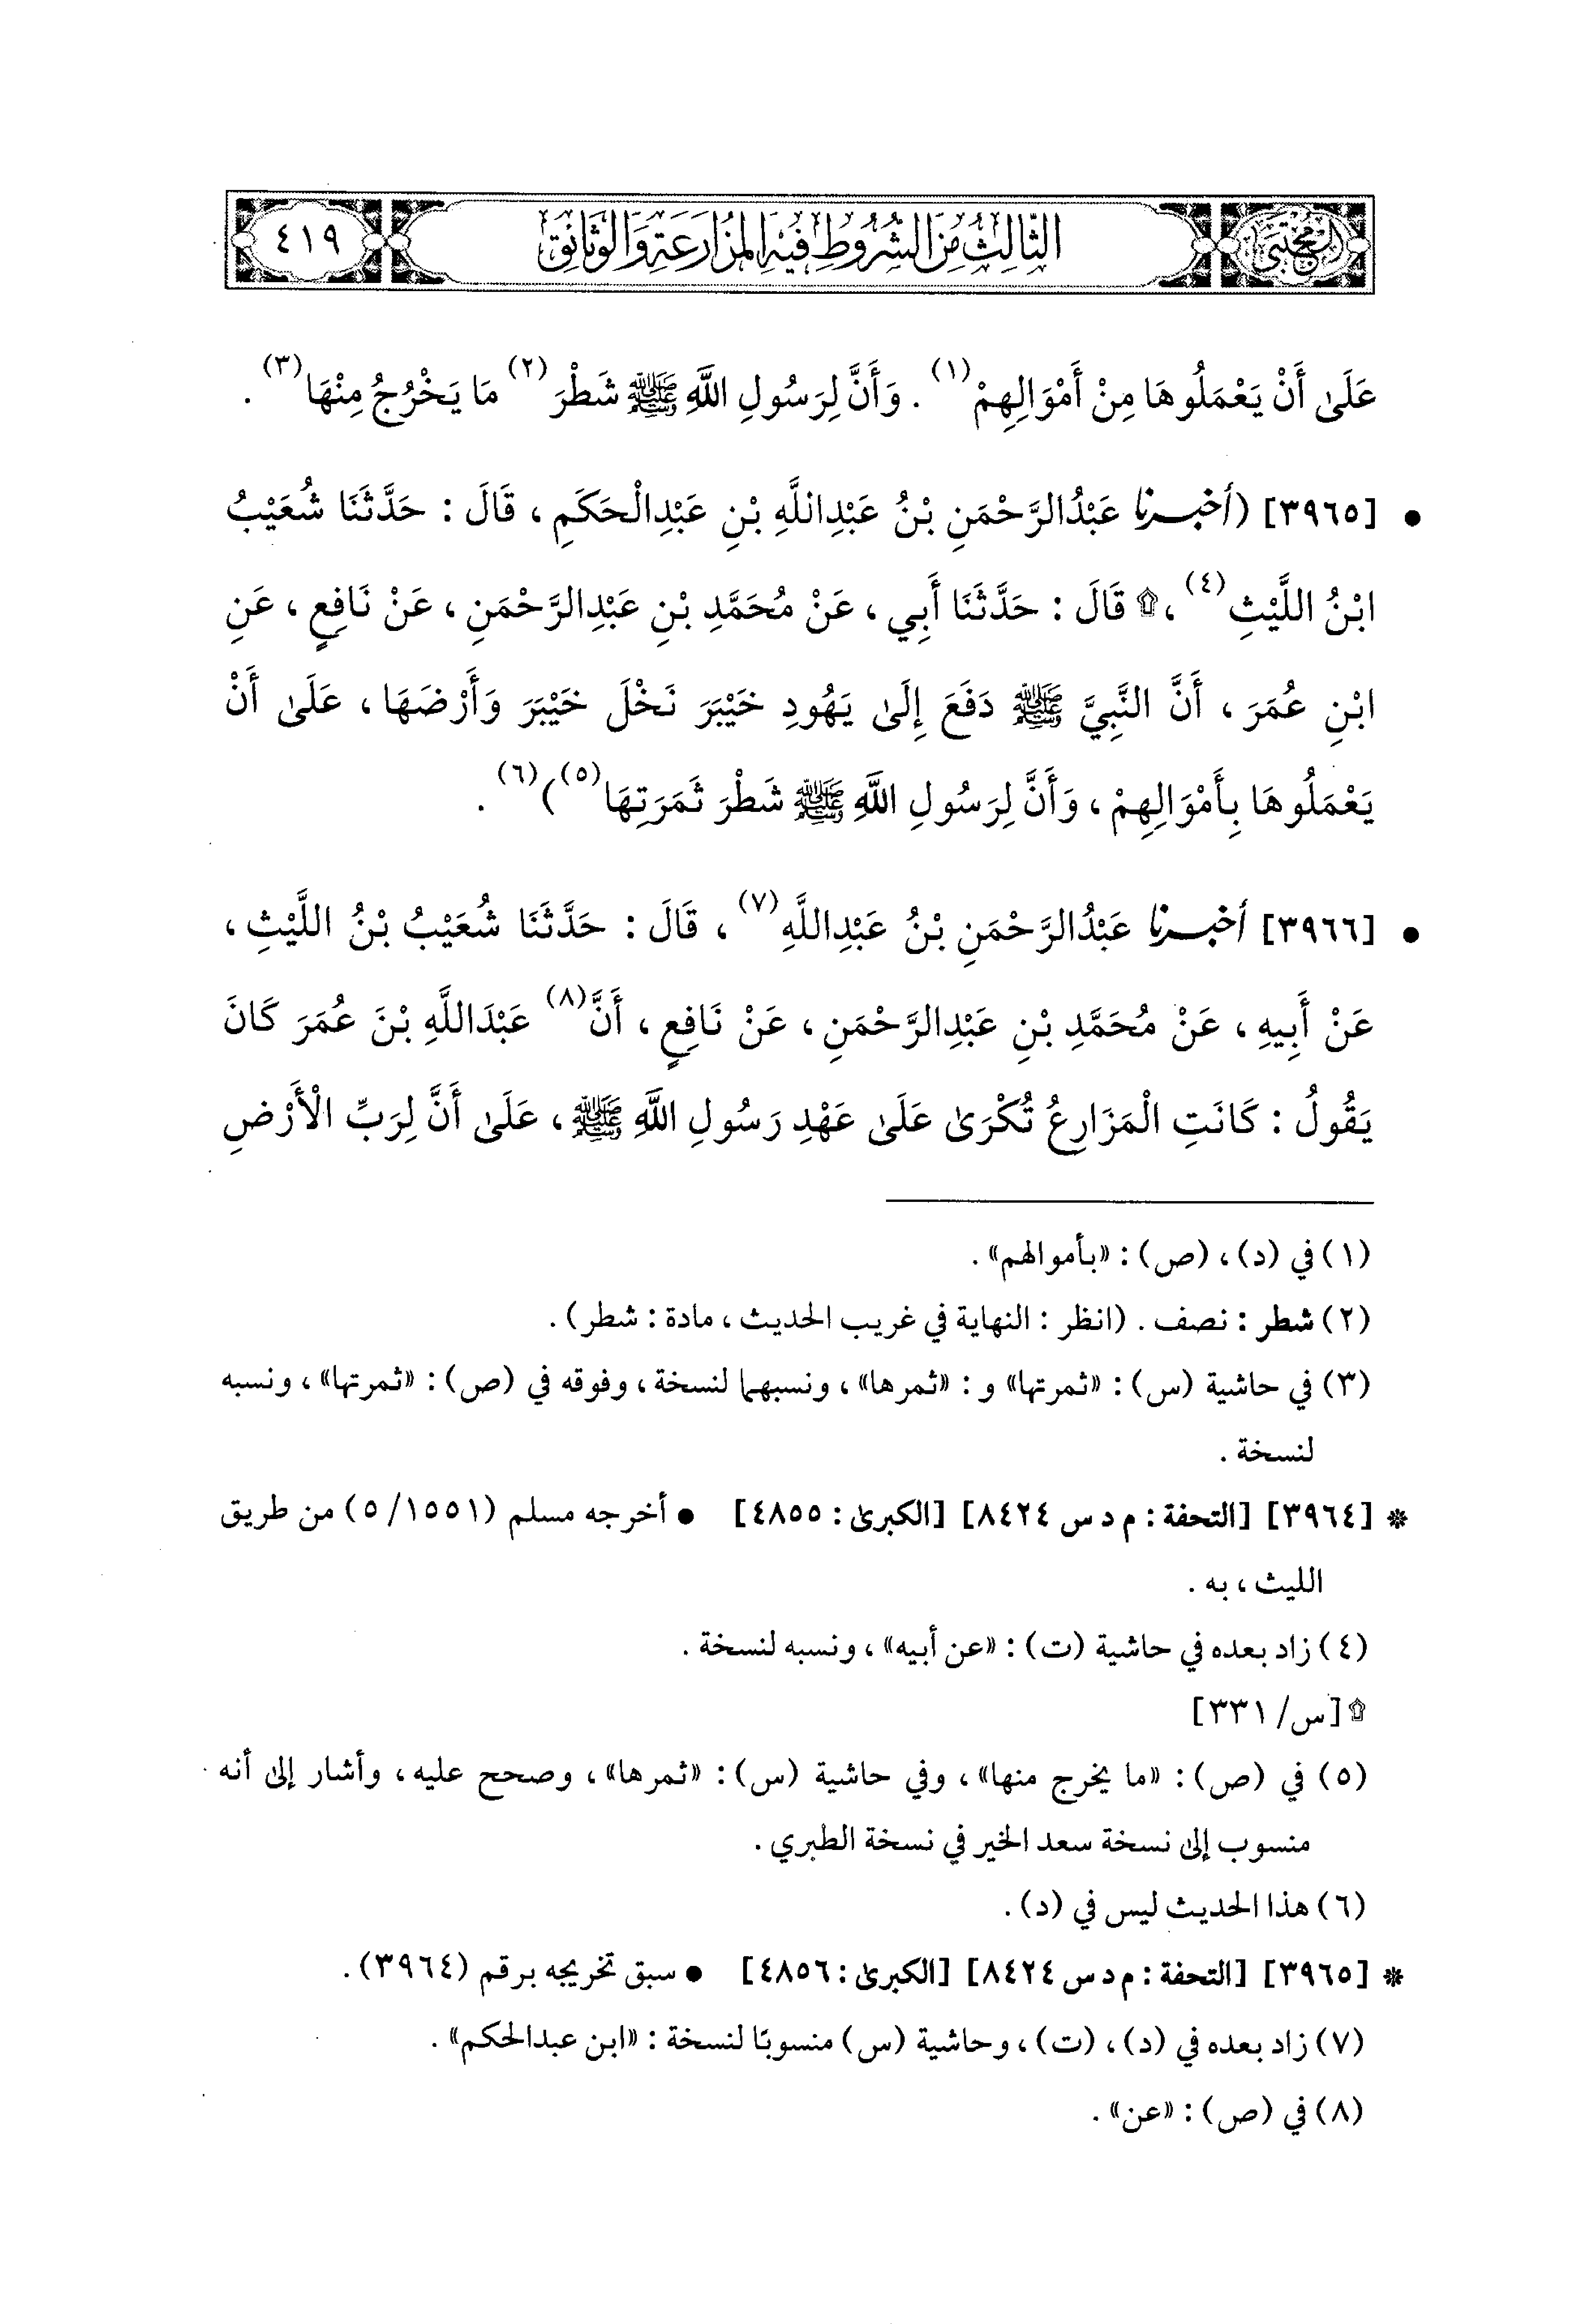 المجتبى
الثالث من الشروط فيه المزارعة والوثائق
٤١٩
عَلَىٰ أَنْ يَعْمَلُوهَا مِنْ أَمْوَالِهِمْ(١) . وَأَنَّ لِرَسُولِ اللَّهِ ﷺ شَطْرَ(٢) مَا يَخْرُجُ مِنْهَا(٣) .
• [٣٩٦٥] (أخبرنا عَبْدُالرَّحْمَنِ بْنُ عَبْدِاللَّهِ بْنِ عَبْدِالْحَكَمِ ، قَالَ : حَدَّثَنَا شُعَيْبُ
ابْنُ اللَّيْثِ(٤) ،۩ قَالَ : حَدَّثَنَا أَبِي ، عَنْ مُحَمَّدِ بْنِ عَبْدِالرَّحْمَنِ ، عَنْ نَافِعٍ ، عَنِ
ابْنِ عُمَرَ ، أَنَّ النَّبِيَّ ﷺ دَفَعَ إِلَىٰ يَهُودِ خَيْبَرَ نَخْلَ خَيْبَرَ وَأَرْضَهَا ، عَلَىٰ أَنْ
يَعْمَلُوهَا بِأَمْوَالِهِمْ ، وَأَنَّ لِرَسُولِ اللَّهِ ﷺ شَطْرَ ثَمَرَتِهَا(٥))(٦) .
• [٣٩٦٦] أخبرنا عَبْدُالرَّحْمَنِ بْنُ عَبْدِاللَّهِ(٧) ، قَالَ : حَدَّثَنَا شُعَيْبُ بْنُ اللَّيْثِ ،
عَنْ أَبِيهِ ، عَنْ مُحَمَّدِ بْنِ عَبْدِالرَّحْمَنِ ، عَنْ نَافِعٍ ، أَنَّ(٨) عَبْدَاللَّهِ بْنَ عُمَرَ كَانَ
يَقُولُ : كَانَتِ الْمَزَارِعُ تُكْرَىٰ عَلَىٰ عَهْدِ رَسُولِ اللَّهِ ﷺ ، عَلَىٰ أَنَّ لِرَبِّ الْأَرْضِ
(١) في (د) ، (ص) : «بأموالهم» .
(٢) شطر : نصف . (انظر : النهاية في غريب الحديث ، مادة : شطر) .
(٣) في حاشية (س) : «ثمرتها» و : «ثمرها» ، ونسبهما لنسخة ، وفوقه في (ص) : «ثمرتها» ، ونسبه
لنسخة .
* [٣٩٦٤] [التحفة : م د س ٨٤٢٤] [الكبرىٰ : ٤٨٥٥] • أخرجه مسلم (١٥٥١/ ٥) من طريق
الليث ، به .
(٤) زاد بعده في حاشية (ت) : «عن أبيه» ، ونسبه لنسخة .
۩ [س/ ٣٣١]
(٥) في (ص) : «ما يخرج منها» ، وفي حاشية (س) : «ثمرها» ، وصحح عليه ، وأشار إلىٰ أنه
منسوب إلىٰ نسخة سعد الخير في نسخة الطبري .
(٦) هذا الحديث ليس في (د) .
* [٣٩٦٥] [التحفة : م د س ٨٤٢٤] [الكبرىٰ : ٤٨٥٦] • سبق تخريجه برقم (٣٩٦٤) .
(٧) زاد بعده في (د) ، (ت) ، وحاشية (س) منسوبًا لنسخة : «ابن عبدالحكم» .
(٨) في (ص) : «عن» .